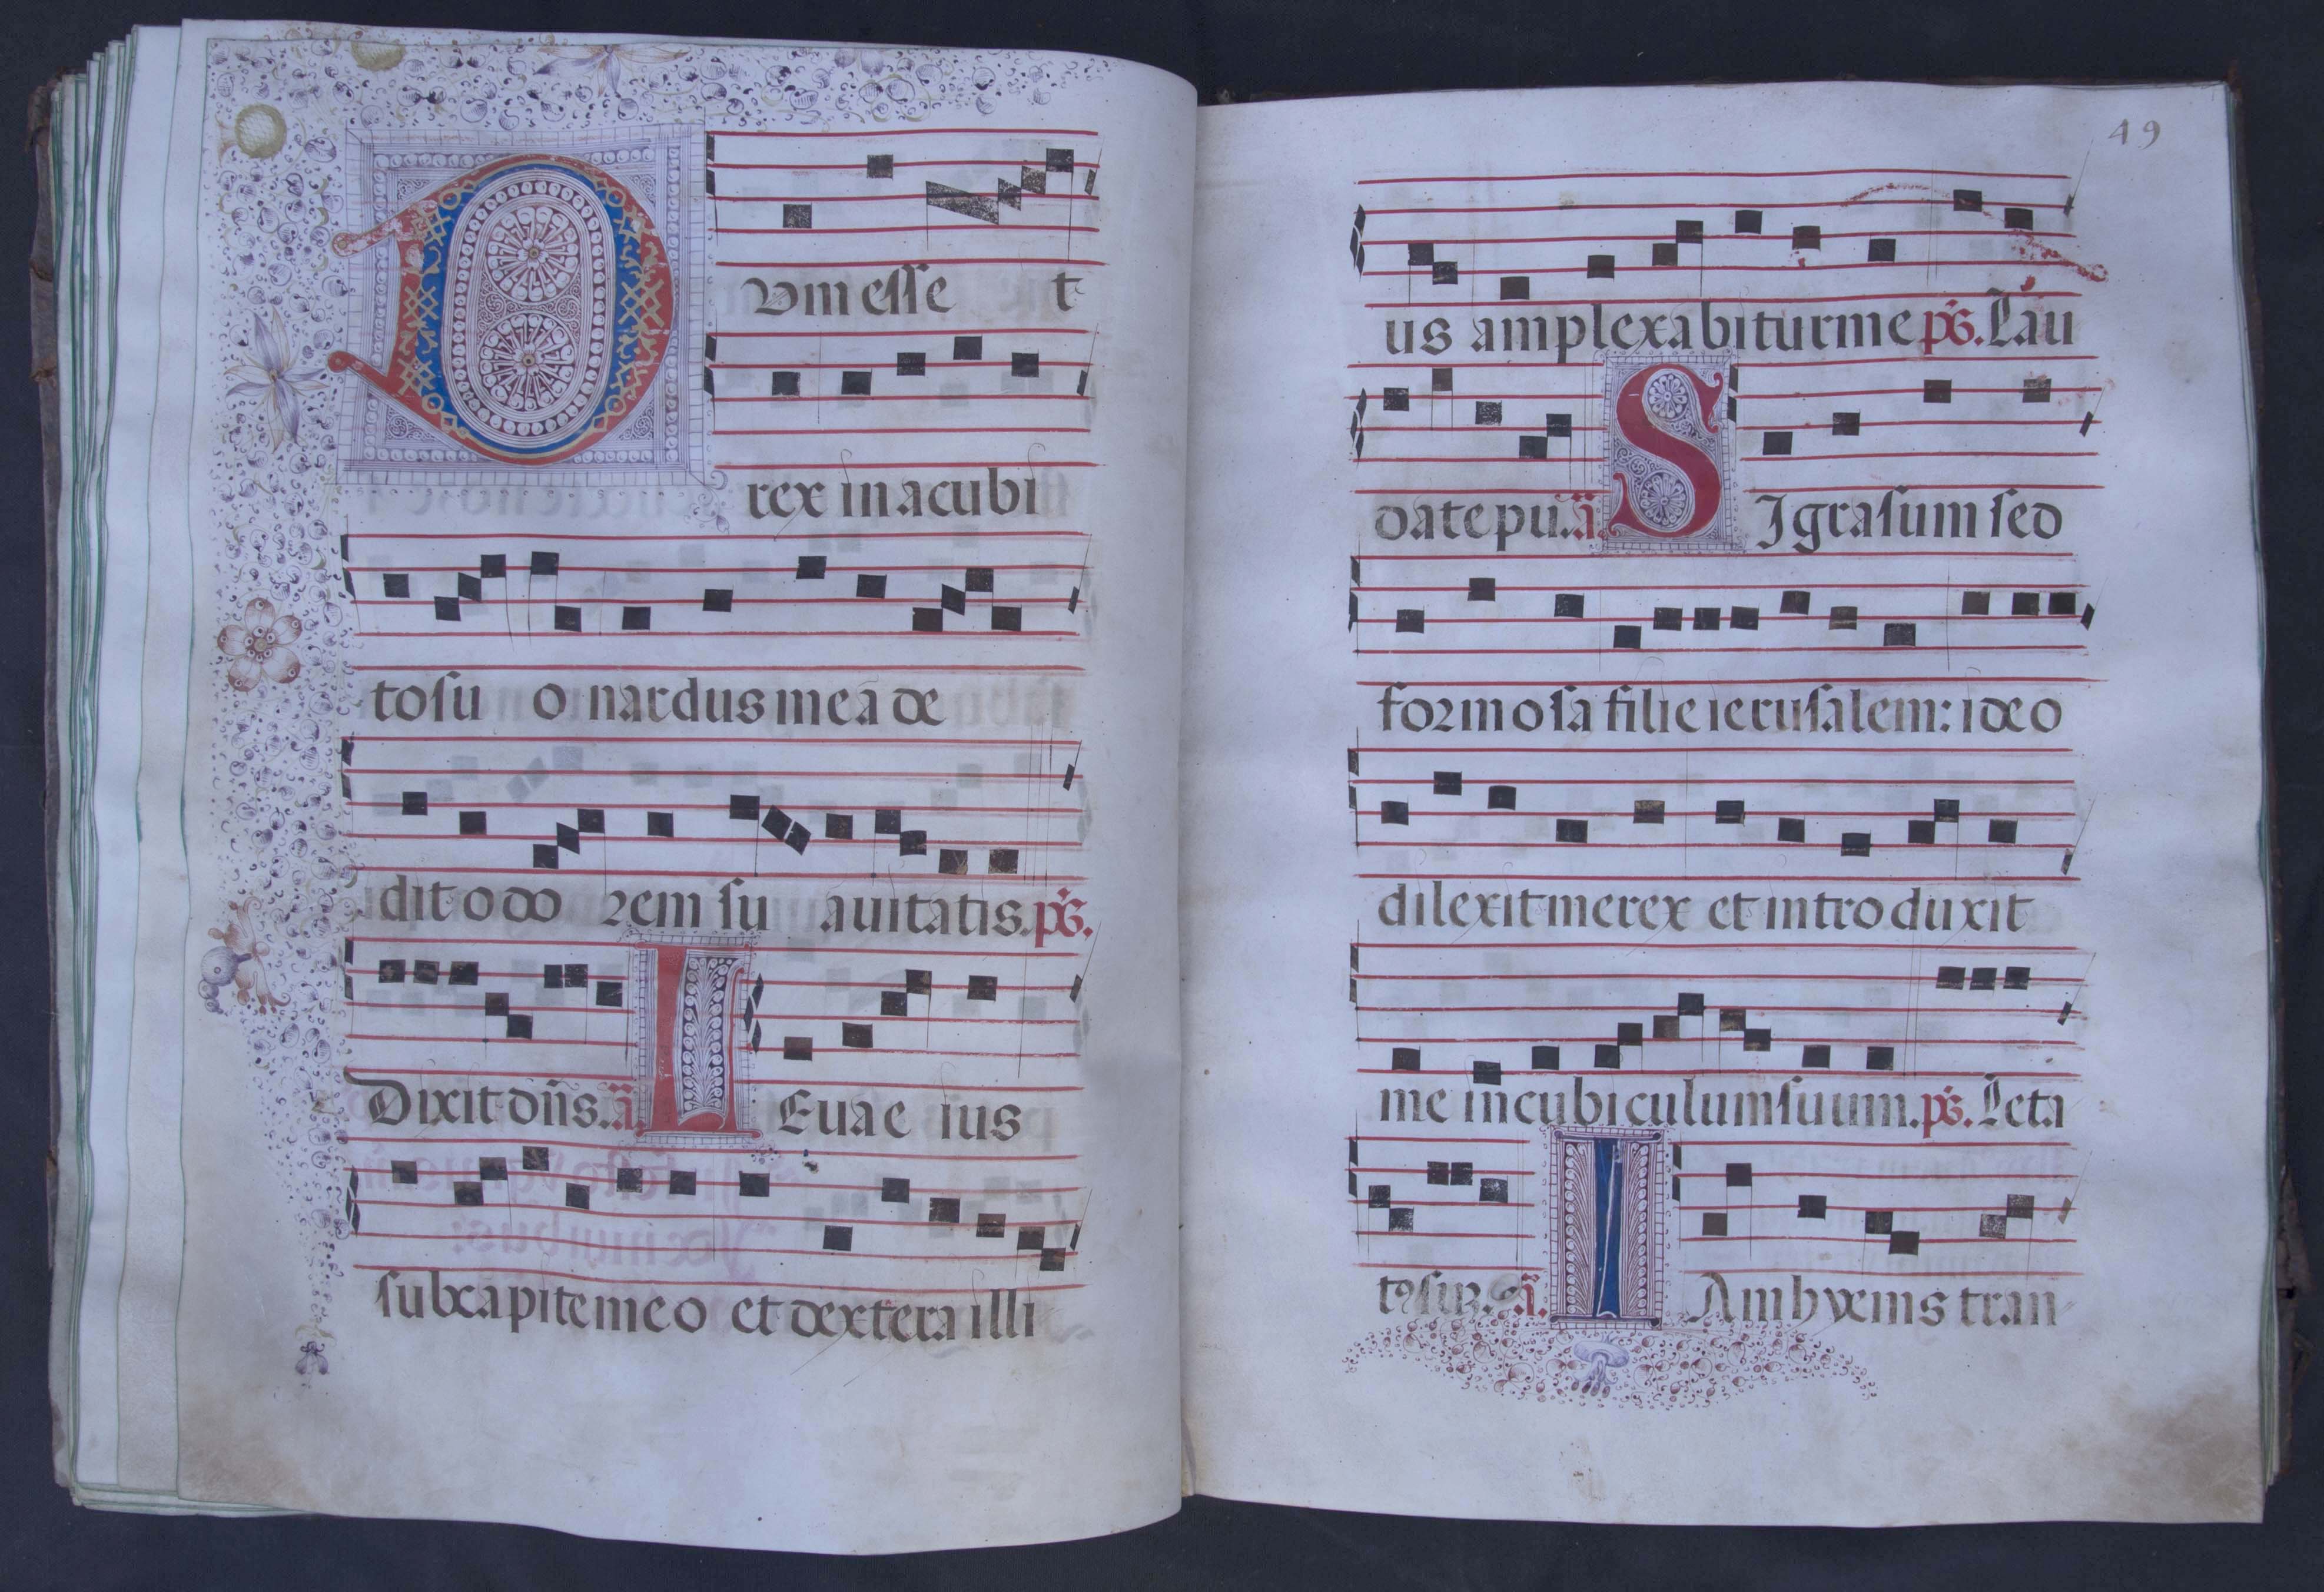 DVm esse t
rex in acubi
to su o nardus mea de
dit odo rem su auitatis. ps.
Dixit dñs. añ. LEua e ius
sub capite meo et dextera illi
49
us amplexabitur me ps. Lau
date pu. añ. SIgra sum sed
formosa filie ierusalem: ideo
dilexit me rex et introduxit
me in cubiculum suum. ps. Leta
añ. IAm hyems tran